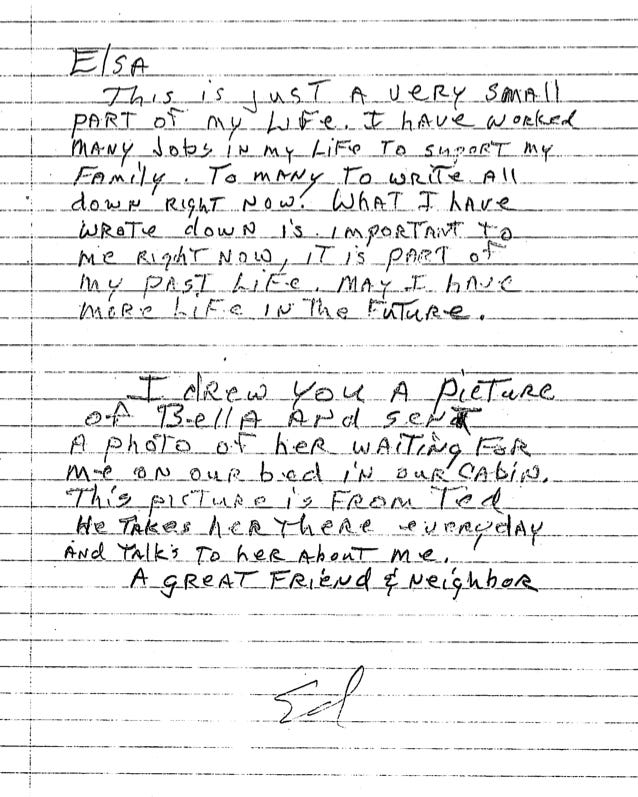 Elsa
This is just A very small
PART of my Life. I have worked
MANY Jobs in my Life To suport my
Family. To MANY To write All
down Right Now. What I have
wrote down is important to
me Right Now, it is part of
my past Life. May I have
more Life in The Future.
I drew you A picture
of Bella And sent
A photo of her waiting for
me on our bed in our cabin.
This picture is From Ted
He Takes her There everyday
And Talk's To her About me.
A great Friend & Neighbor
Ed